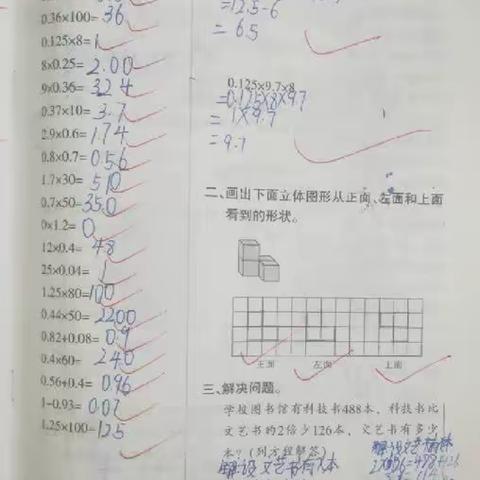 0.36×100=36
0.125×8=1
8×0.25=2.00
9×0.36=3.24
0.37×10=3.7
2.9×0.6=1.74
0.8×0.7=0.56
1.7×30=510
0.7×50=35.0
0×1.2=0
12×0.4=48
25×0.04=1
1.25×80=100
0.44×50=22.00
0.82+0.08=0.9
0.4×60=240
0.56+0.4=0.96
1-0.93=0.07
1.25×100=125
=12.5-6
=6.5
0.125×9.7×8
=0.125×8×9.7
=1×9.7
=9.7
二、画出下面立体图形从正面、左面和上面
看到的形状。
正面 左面 上面
三、解决问题。
学校图书馆有科技书488本，科技书比
文艺书的2倍少126本，文艺书有多少
本？(列方程解答)
解:设文艺书有x本